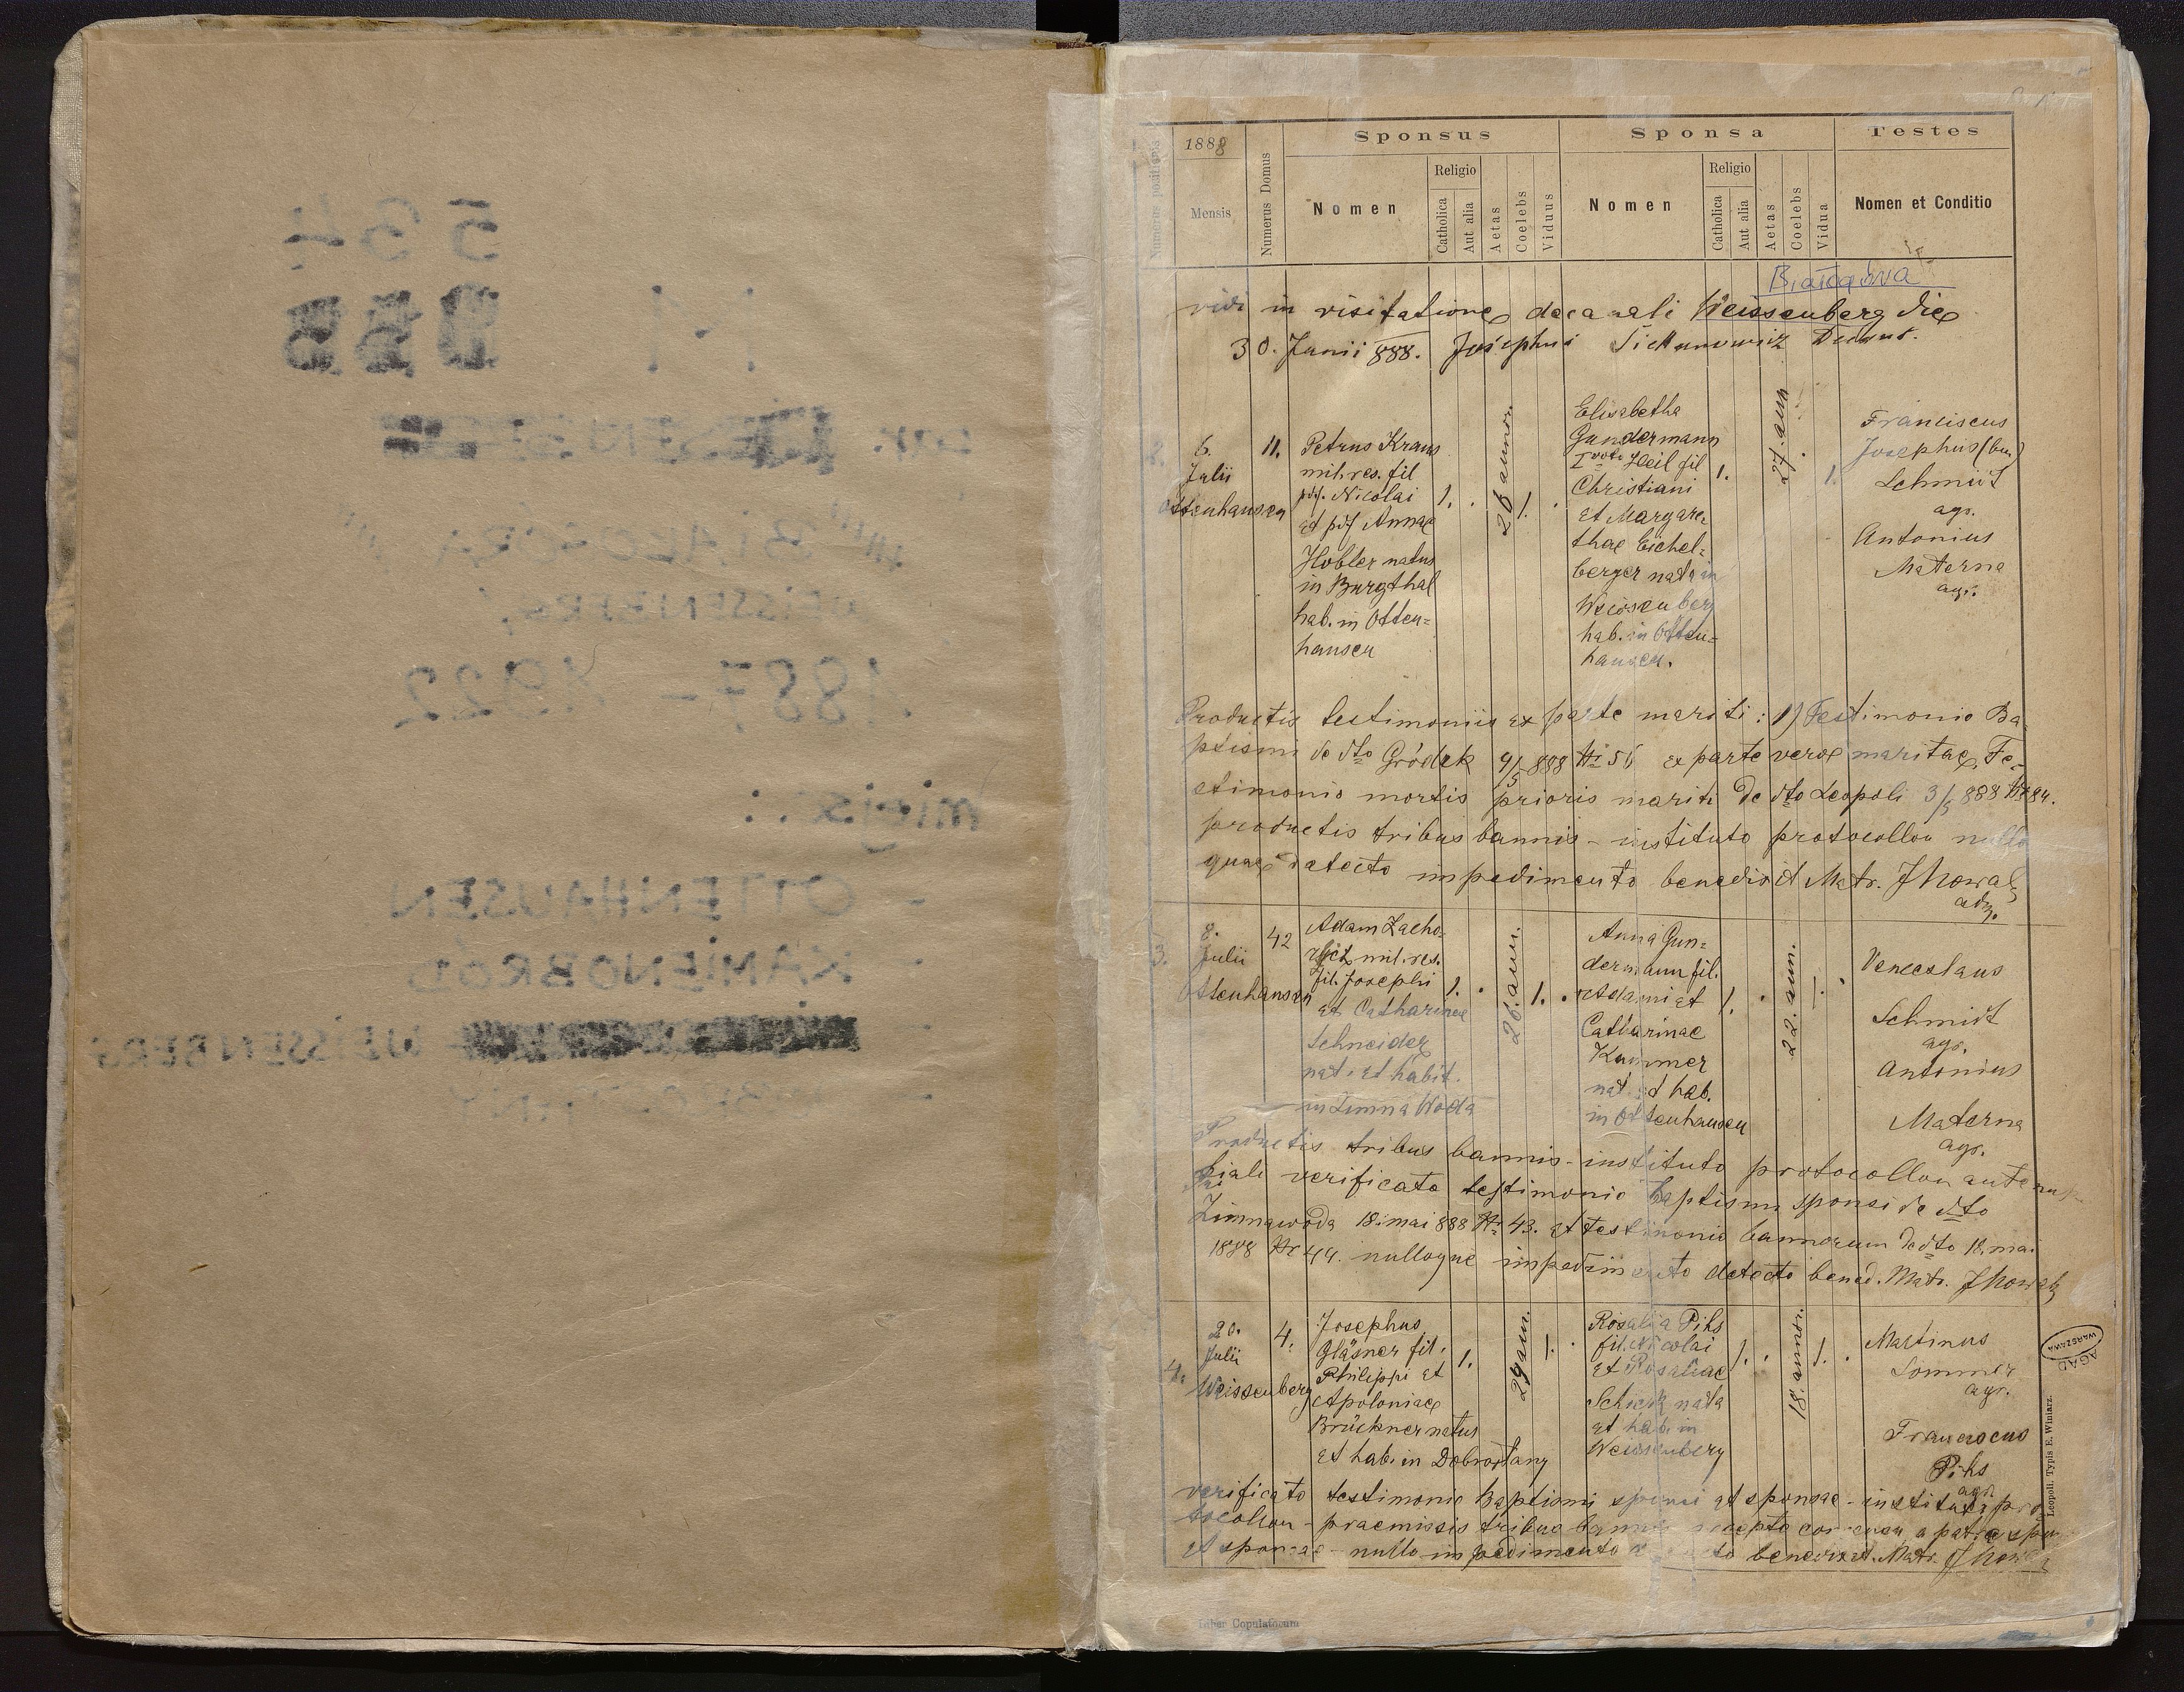 534
1887 - 1922
miejsc.:
- OTTENHAUSEN
- KAMIENOBRÓD
WEISSENBERG
1888
Sponsus
Sponsa
Testes
Numerus Domus
Mensis
Nomen
Religio
Catholica
Aut alia
Aetas
Coelebs
Viduus
Nomen
Religio
Catholica
Aut alia
Aetas
Coelebs
Vidua
Nomen et Conditio
Białogóra
vidi in visitatione decanali Weissenberg die
30. Junii 888. Josephus Decan.
2.
6.
Julii
Ottenhausen
11.
Petrus Kraus
mil. res. fil
pdf. Nicolai
et pdf Annae
Hobler natus
in Burgthal
hab. in Otten=
hausen
1. .
26 annor.
1. .
Elisabetha
Gundermann
I voto Heil fil
Christiani
et Margare=
thae Eichel=
berger nata in
Weissenberg
hab. in Otten=
hausen.
1.
27. ann
1.
Franciscus
Josephus
Schmidt
agr.
Antonius
Materna
agr.
Productis testimoniis ex parte mariti: 1) Testimonio Ba=
ptismi de dto Gródek 9/5 888 Nr 56 ex parte vero maritae, Te=
stimonio mortis prioris mariti de dto Leopoli 3/5 888 Nr 84.
productis tribus bannis - instituto protocollon nullo
quae detecto impedimento benedixit Matr. J Nowak
adm.
3.
8.
Julii
Ottenhausen
42
Adam Zacho=
mil. res.
fil. Josephi
et Catharinae
Schneider
nat. et habit.
in Zimna Woda
1. .
26. ann.
1. .
Anna Gun=
dermann fil.
Adami et
Catharinae
Kammer
nat. et hab.
in Ottenhausen
1. .
22. ann.
1. .
Venceslaus
Schmidt
agr.
Antonius
Materna
agr.
Productis tribus bannis - instituto protocollon antenup
tiali verificato testimonio baptismi sponsi de dto
Zimnawoda 18. mai 888 Nr 43. et testimonio bannorum de dto 18. mai
1888 Nr 49. nulloque impedimento detecto bened. Matr. J Nowak
4.
20.
Julii
Weissenberg
4.
Josephus
Gläsner fil.
Philippi et
Apoloniae
Brückner natus
et hab. in Dobrostany
1.
29 ann.
1. .
Rosalia Pihs
fil. Nicolai
et Rosaliae
Schick nata
et hab. in
Weissenberg
1. .
18. annor.
1. .
Martinus
Sommer
agr.
Franciscus
Pihs
agr.
verificato testimonio Baptismi sponsi et sponsae - instituto pro
tocollon - praemissis tribus bannis
et sponsae - nullo impedimento detecto benedixit. Matr. J Nowak
AGAD
WARSZAWA
Leopoli. Typis E. Winiarz.
Liber Copulatorum